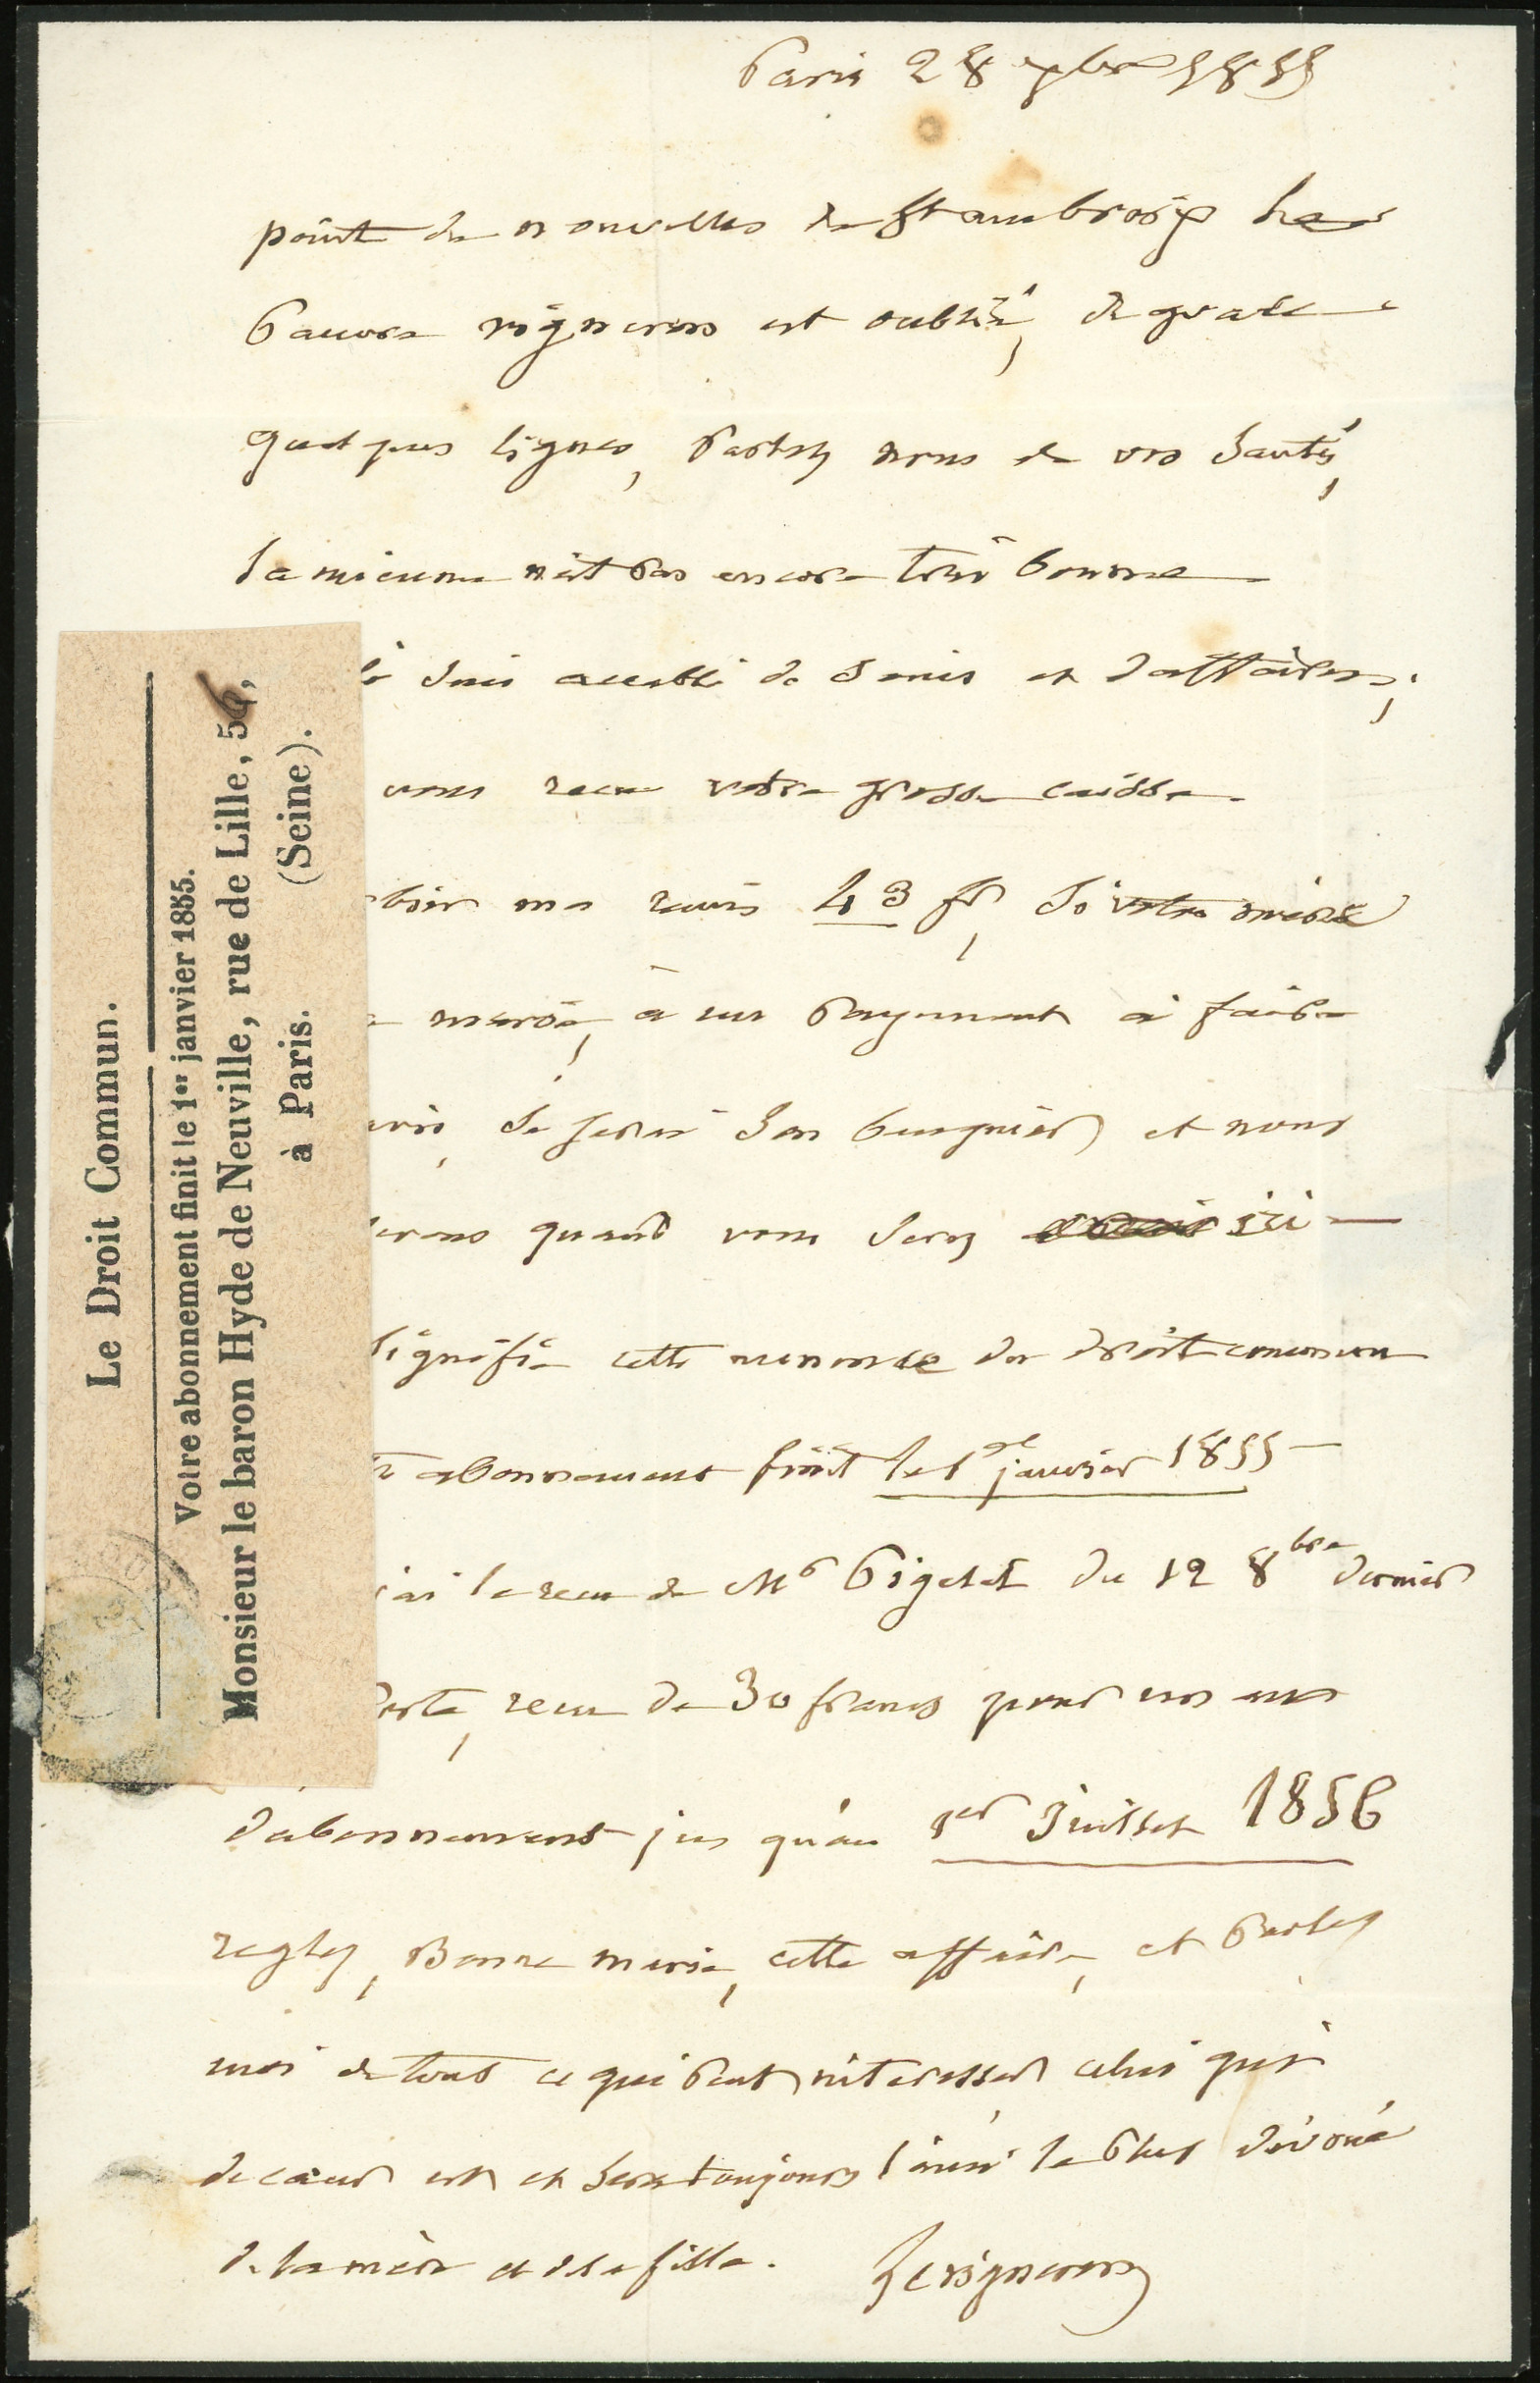 Paris 28 1855
point de nouvelles de St ambroix le
Pauvre vigneron est oublié, de grace
quelques lignes, Parlez nous de vos Santés,
la mienne n'est Pas encore très bonne
suis accablé de Soucis et d'affaires,
vous recu votre grosse caisse.
me remis 43 fr, Si votre mère
marie, a un Payement à faire
je serai Son banquier et nous
quand vous serez ici
signifie cette annonce du droit commun
abonnement finit le 1er janvier 1855
j'ai le recu de Mr Pigelet du 12 8bre dernier
Porte, recu de 30 francs pour un an
d'abonnement jus qu'au 1er Juillet 1856
reglez, Bonne marie, cette affaire, et Parlez
moi de tout ce qui Peut interesser celui qui
de cœur est et Sera toujours l'ami le Plus dévoué
de la mère et de la fille. le vigneron
Le Droit Commun.
Votre abonnement finit le 1er janvier 1855.
Monsieur le baron Hyde de Neuville, rue de Lille,
à Paris. (Seine).